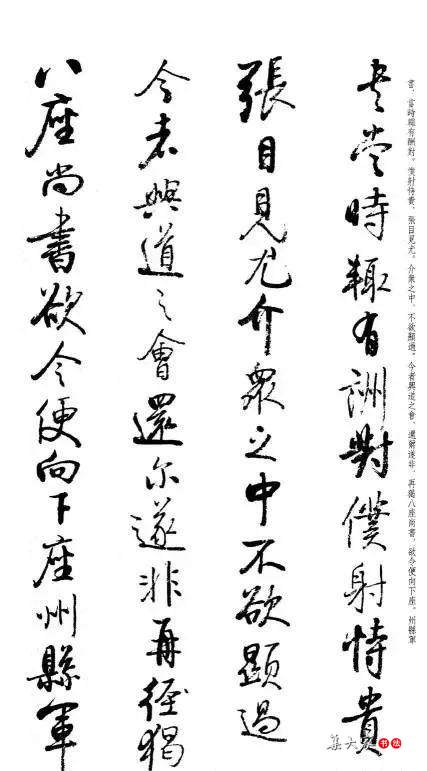 書、當時輒有酬對。僕射恃貴、張目見尤。介衆之中、不欲顯過。今者興道之會、還爾遂非、再猲八座尚書、欲令便向下座。州縣軍
書當時輒有酬對僕射恃貴
張目見尤介衆之中不欲顯過
今者興道之會還尔遂非再徑猲
八座尚書欲令便向下座州縣軍
集大家書法